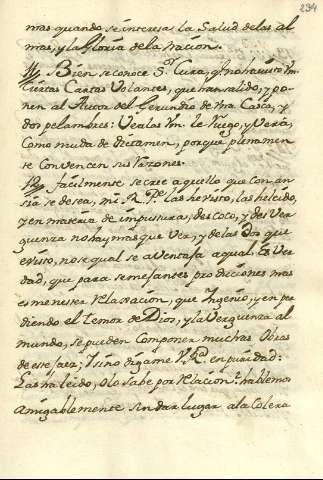 239
mas quando se interesa la Salud de las al
mas, y la Gloria de la Nacion.
Bien se conoce Sor. Cura, q.e no ha visto Vm.
Ciertas Cartas Volantes, que han salido, y po-
nen al Autor del Gerundio de Vra Casca, y
dos pelambres: Vealas Vm. le Ruego, y Verà,
Como muda de dictamen, porque plenamen-
te Convencen sus Razones.
facilmente se cree aquello que con an-
sia se desea, mi R. Pe. las he visto, las he leido,
y en materia de imposturas, descoco, y desVer
guenza no hay mas que Ver, y de las Dos que
è visto, no se qual se aVentaja a qual. Es Ver
dad, que para semejantes producciones mas
es menester Relaxacion, que Ingenio, y en per
diendo el temor de Dios, y la Verguenza al
mundo, se pueden Componer muchas Obras
de este jaez; y sino digame V. Rd. en puridad:
Las ha leido, ò lo sabe por Relacion? hablemos
amigablemente sin dar lugar a la Colera